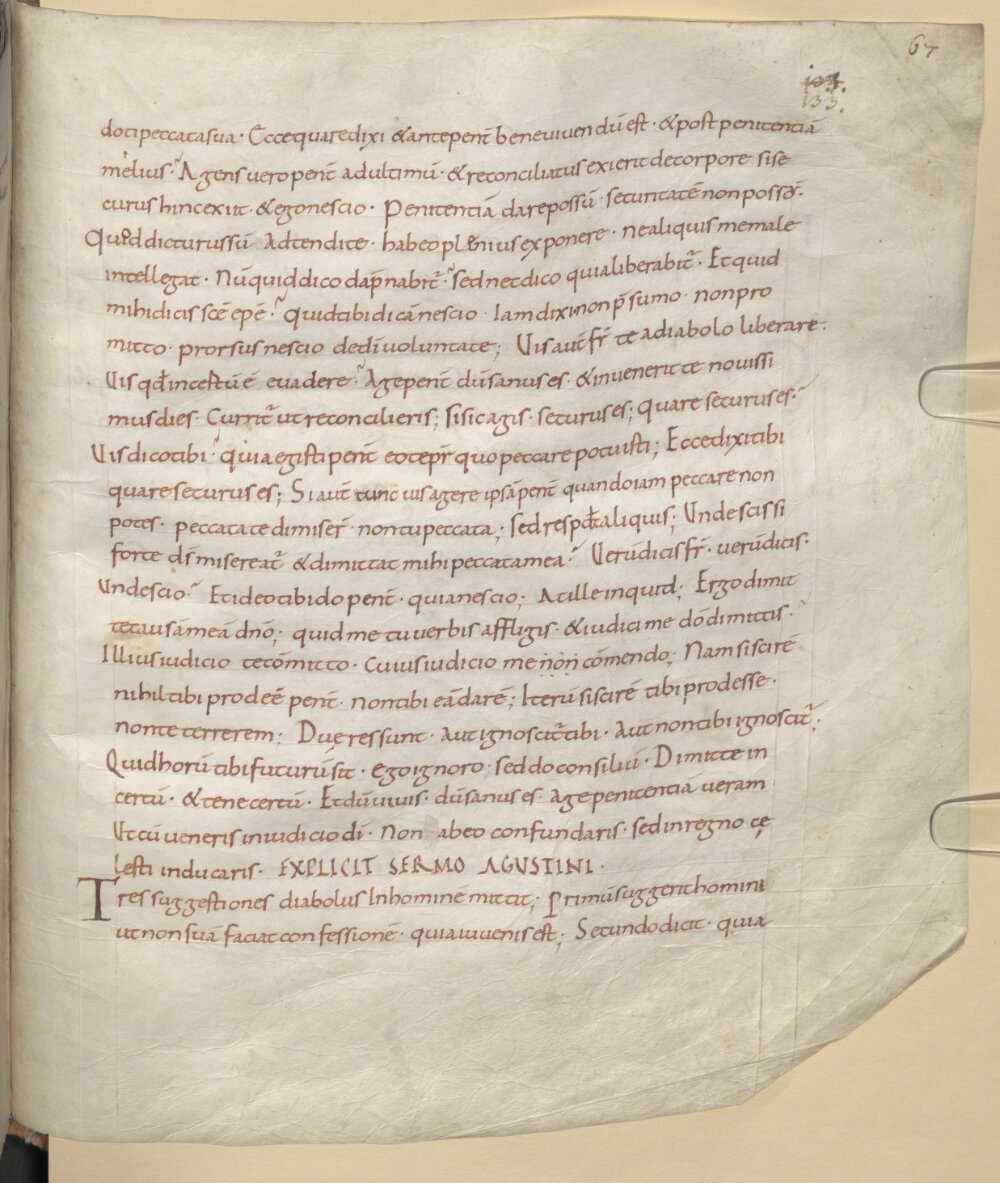 67
133.
doti peccata sua · Ecce quare dixi & ante penit̄ bene vivendū est · & post penitentiā
melius · Agens vero penit̄ ad ultimū · & reconciliatus exierit de corpore si se
curus hinc exiit · & ego nescio · Penitentiā dare possū · securitatē non possū ·
Quid dicturus sū Adtendite · habeo plenius exponere · ne aliquis me male
intellegat · Nūquid dico dāpnabit̄ · sed nec dico quia liberabit̄ · Et quid
mihi dicis scē epē · quid tibi dicā nescio · Iam dixi non p̄sumo · non pro
mitto · prorsus nescio de dī voluntate ; Uis aut̄ fr̄ te a diabolo liberare ·
Uis qd̄ incertū ē evadere · Age penit̄ dū sanus es · & invenerit te novissi
mus dies · Currit̄ ut reconcilieris ; si sic agis · securus es ; quare securus es ·
Uis dico tibi · quia egisti penit̄ eo tēpr̄ quo peccare potuisti ; Ecce dixi tibi
quare securus es ; Si aut̄ tunc vis agere ipsā penit̄ quando iam peccare non
potes · peccata te dimiser̄ · non tu peccata ; sed respd̄t aliquis ; Unde scis si
forte dS̄ misereat̄ & dimittat mihi peccata mea · Uerū dicis fr̄ · verū dicis ·
Unde scio · Et ideo tibi do penit̄ · quia nescio ; At ille inquid ; Ergo dimit
te causā meā dnō ; quid me tu verbis affligis · & iudici me dō dimittis ·
Illius iudicio te cōmitto · Cuius iudicio me non cōmendo ; Nam si scirē
nihil tibi prodeē penit̄ · non tibi eā darē ; Iterū si scirē tibi prodesse ·
non te terrerem ; Due res sunt · aut ignoscit̄ tibi · Aut non tibi ignoscit̄ ;
Quid horū tibi futurū sit · ego ignoro · sed do consiliū · Dimitte in
certū · & tene certū · Et dū vivis · dū sanus es · age penitentiā veram ·
Ut cū veneris in iudicio dī · Non abeo confundaris · sed in regno cę
lesti inducaris · EXPLICIT SERMO AGUSTINI ·
Tres suggestiones diabolus In hominē mittit ; Primū suggerit homini
ut non suā faciat confessionē · quia iuvenis est ; Secundo dicit · quia